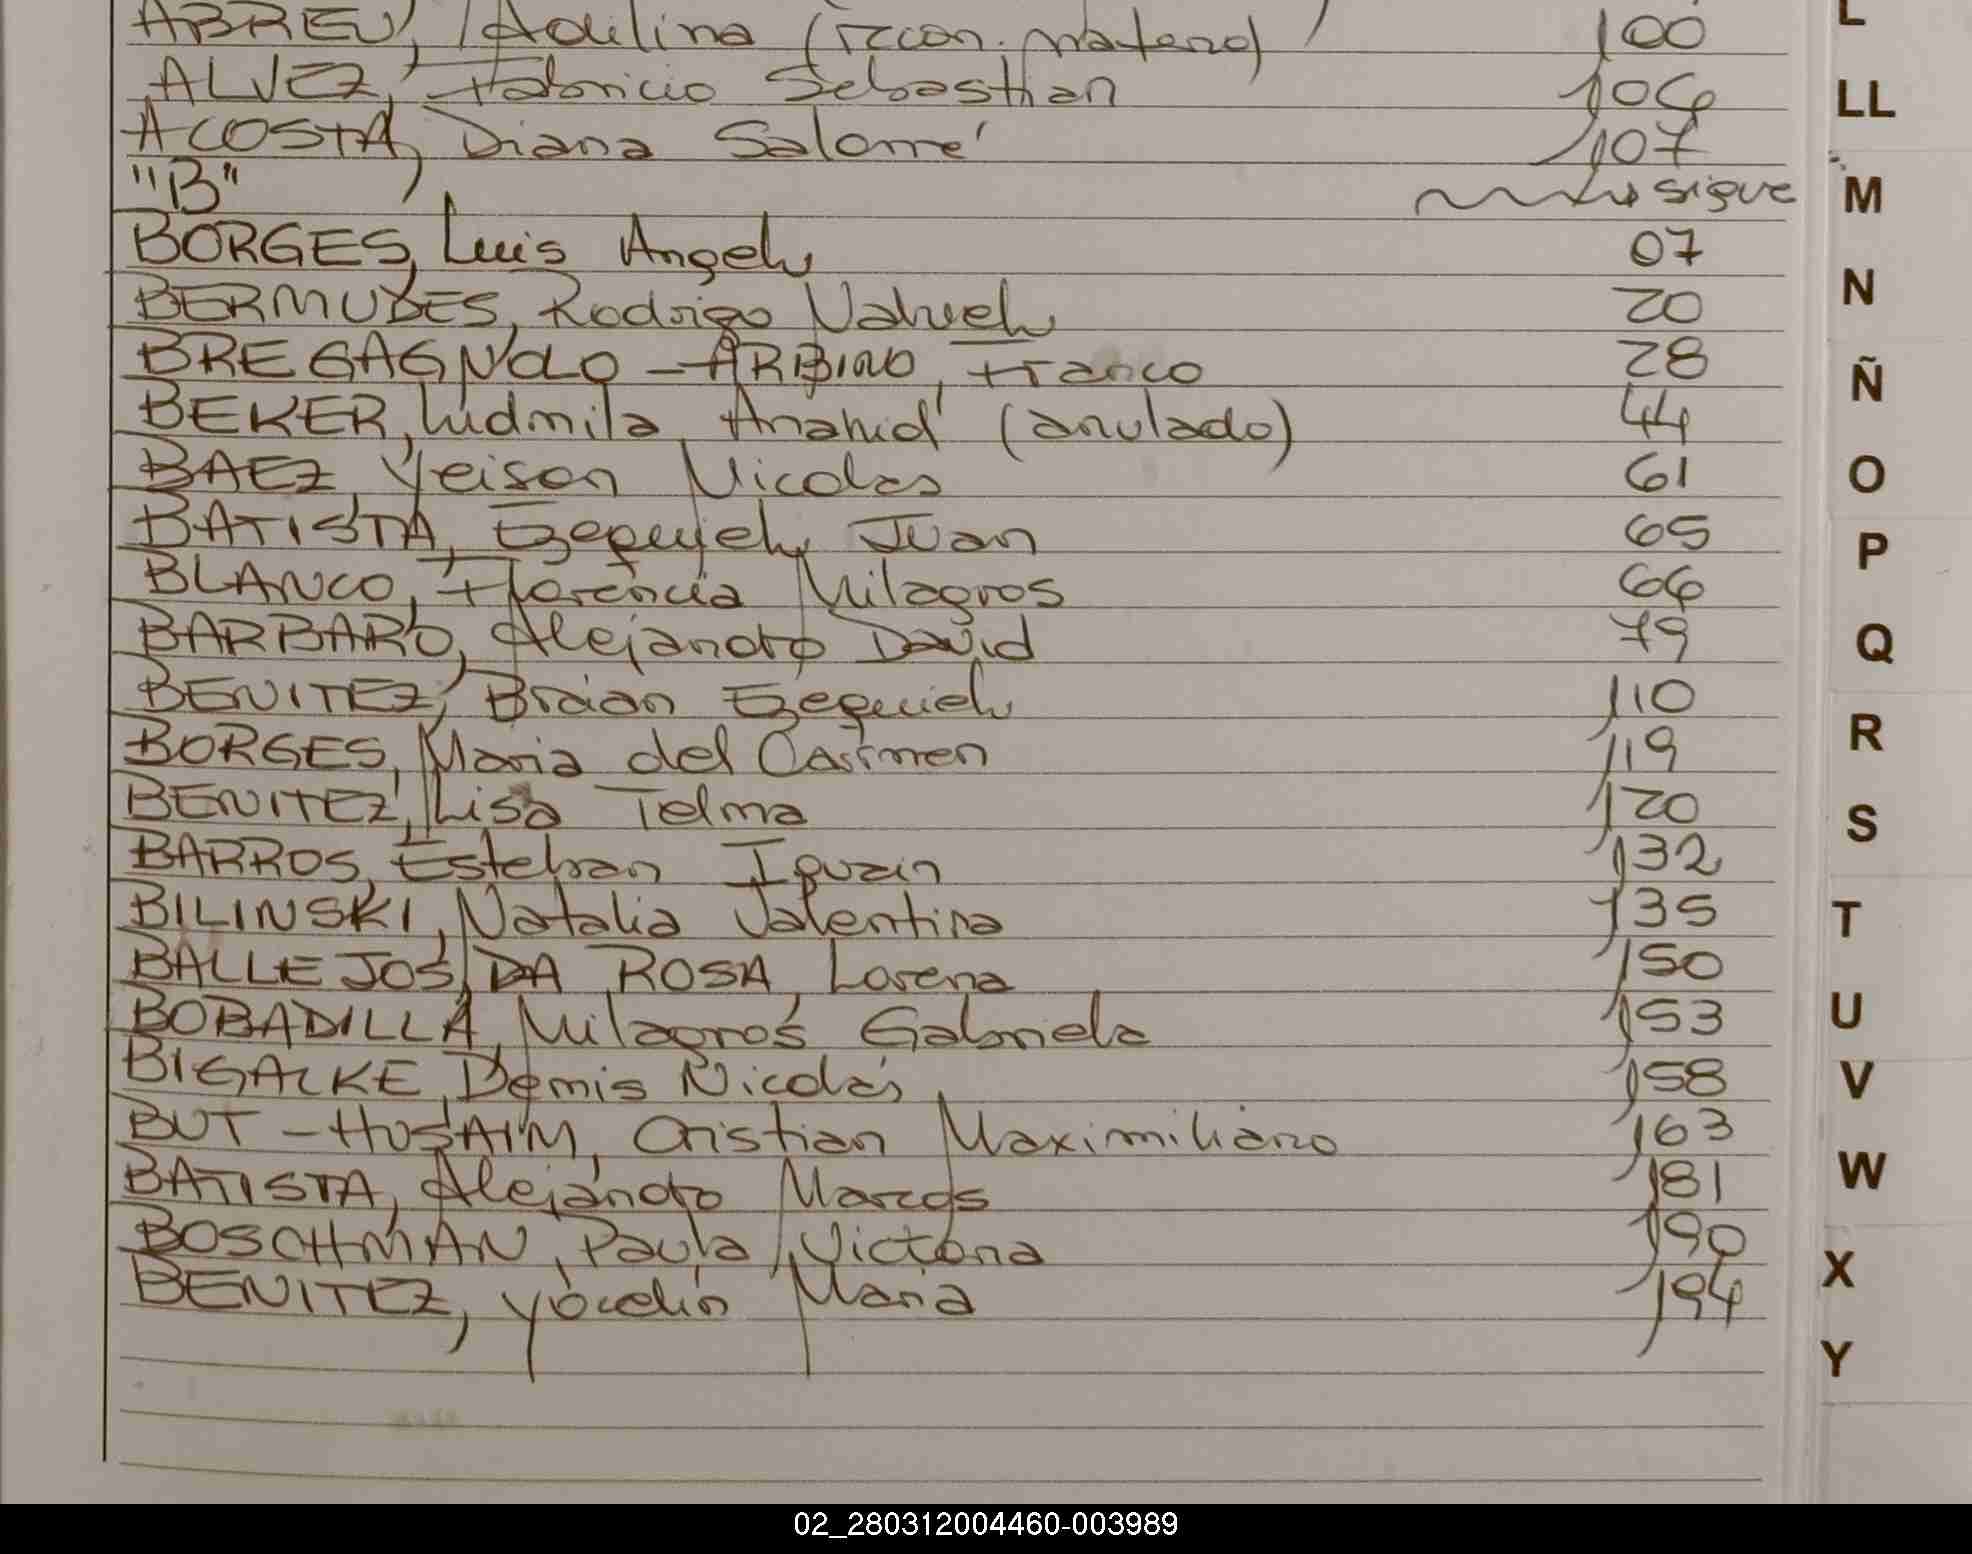 ABREU, Adilina (recon. materno) 100
ALVEZ, Fabricio Sebastian 106
ACOSTA, Diana Salomé 107
"B" sigue
BORGES, Luis Angel 07
BERMUDES, Rodrigo Nahuel 20
BREGAGNOLO - ARBINO, Franco 28
BEKER, Ludmila Anahid (anulado) 44
BAEZ, Yeison Nicolas 61
BATISTA, Ezequiel Juan 65
BLANCO, Florencia Milagros 66
BARBARO, Alejandro David 79
BENITEZ, Braian Ezequiel 110
BORGES, Maria del Carmen 119
BENITEZ, Lisa Telma 120
BARROS, Esteban 132
BILINSKI, Natalia Valentina 135
BALLEJOS DA ROSA, Lorena 150
BOBADILLA, Milagros Gabriela 153
BIGALKE, Demis Nicolás 158
BUT - HUSAIM, Cristian Maximiliano 163
BATISTA, Alejandro Marcos 181
BOSCHMAN, Paula Victoria 190
BENITEZ, Yocelin Maria 194
L
LL
M
N
Ñ
O
P
Q
R
S
T
U
V
W
X
Y
02_280312004460-003989